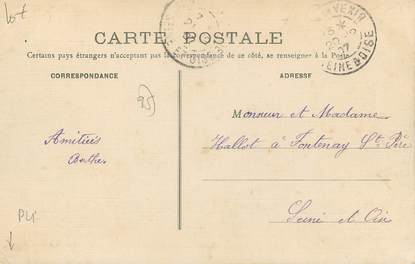 lot
CARTE POSTALE
Certains pays étrangers n'acceptant pas la correspondance de ce côté, se renseigner à la Poste
CORRESPONDANCE
ADRESSE
VEXIN
SEINE & OISE
Monsieur et Madame
Hallot à Fontenay St Père
Seine et Oise
Amitiés
Berthe